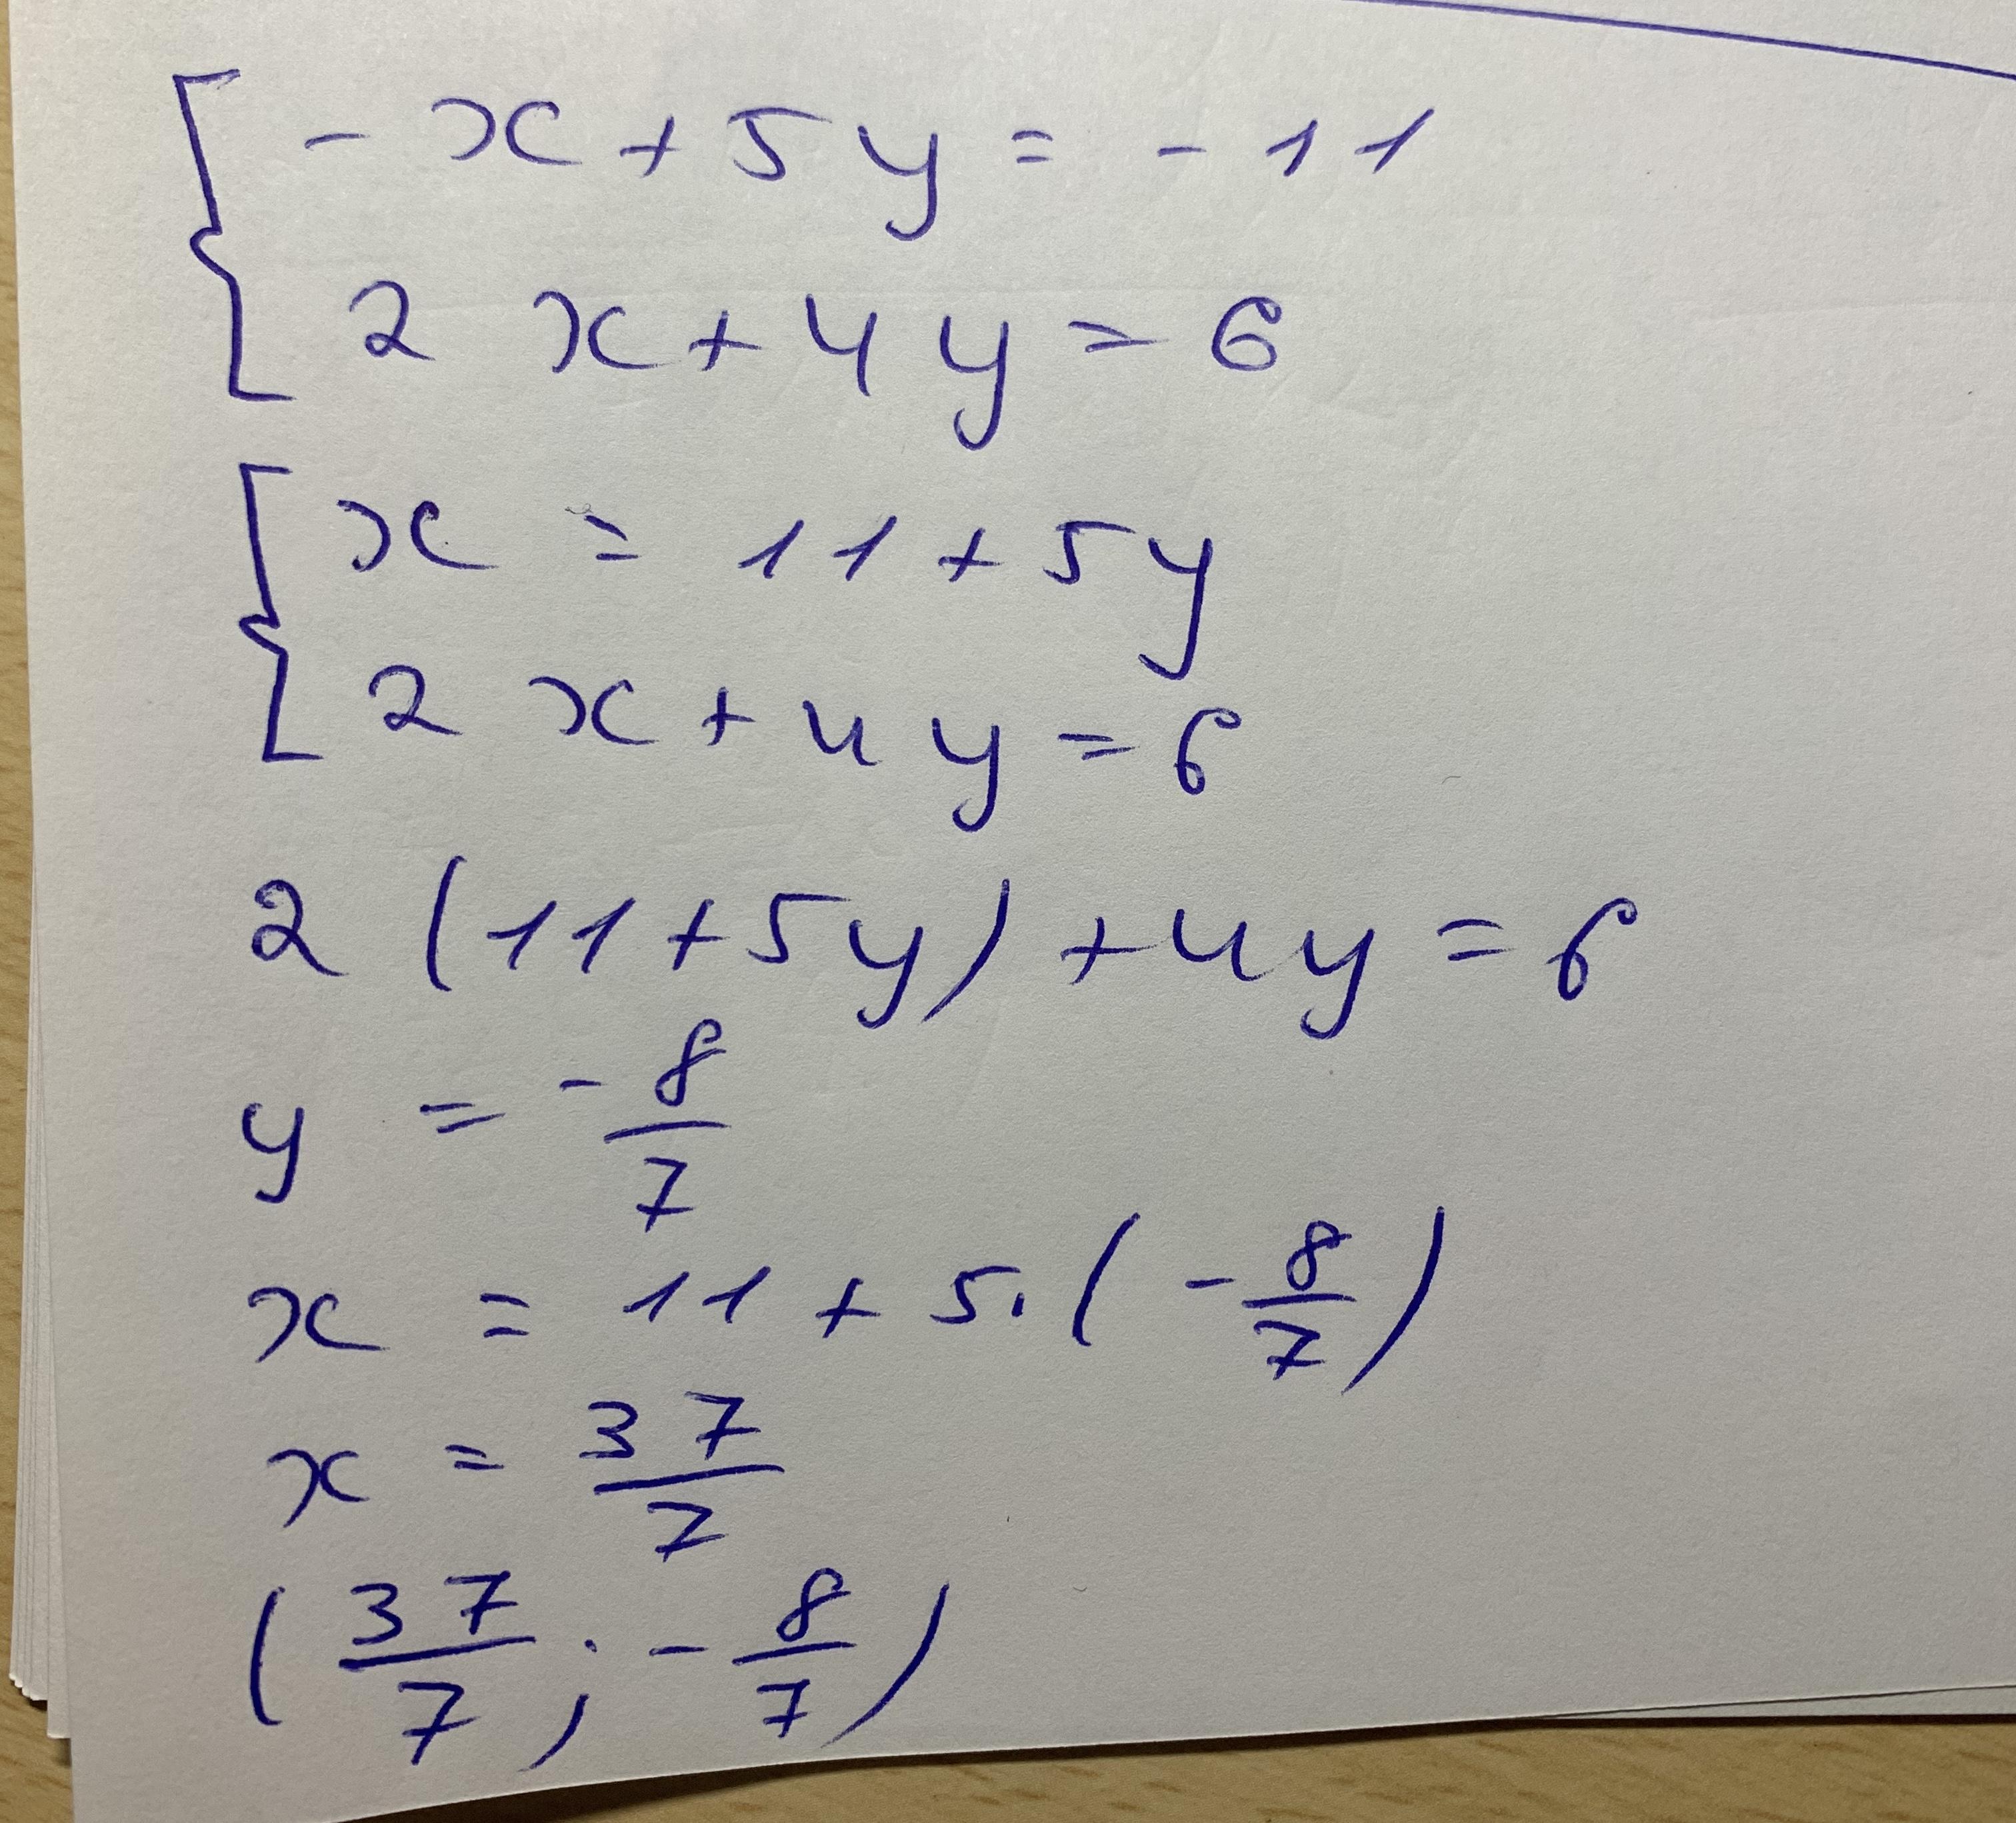 - x + 5y = - 11
2x + 4y = 6
x = 11 + 5y
2x + 4y = 6
2(11 + 5y) + 4y = 6
y = -8/7
x = 11 + 5·(-8/7)
x = 37/7
(37/7; -8/7)